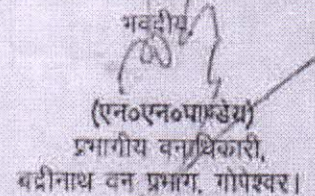 भवदीय,
(एन०एन०पाण्डेय)
प्रभागीय वनाधिकारी,
बद्रीनाथ वन प्रभाग, गोपेश्वर।